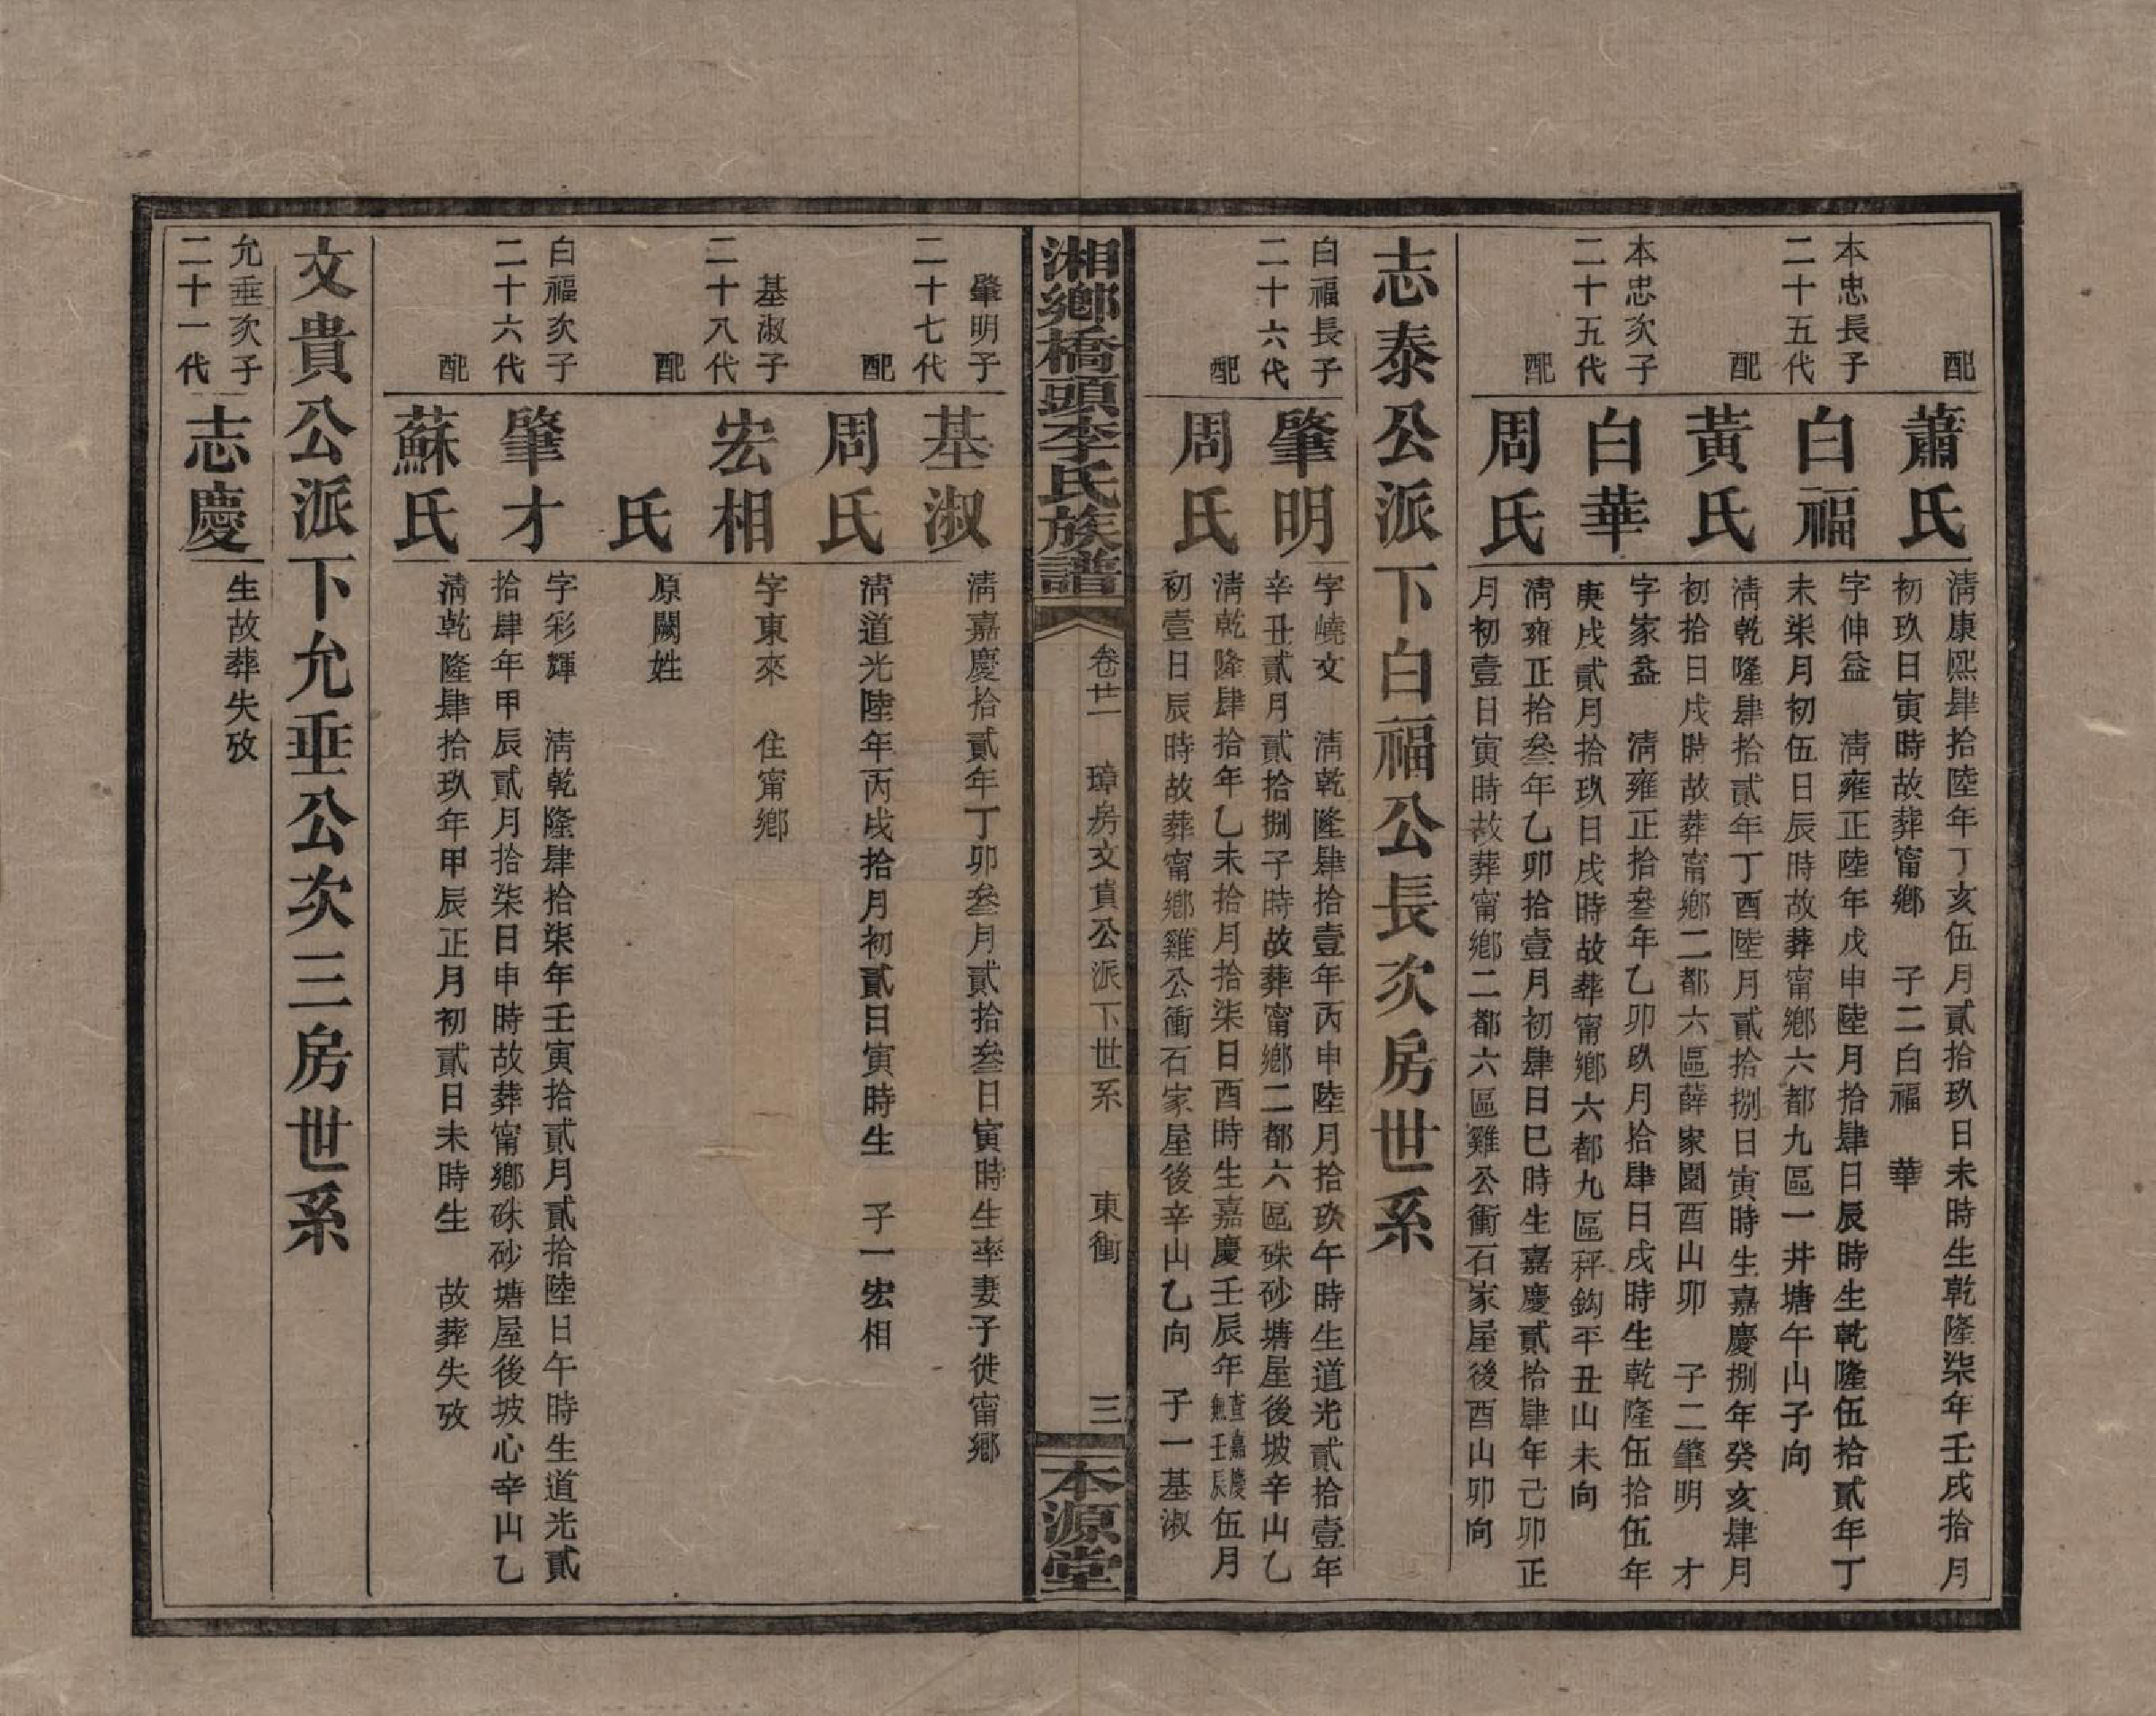 配
蕭氏
清康熙肆拾陸年丁亥伍月貳拾玖日未時生乾隆柒年壬戌拾月
初玖日寅時故葬甯鄉　子二白福　華
本忠長子
二十五代
白福
字伸益　清雍正陸年戊申陸月拾肆日辰時生乾隆伍拾貳年丁
未柒月初伍日辰時故葬甯鄉六都九區一井塘午山子向
配
黃氏
清乾隆肆拾貳年丁酉陸月貳拾捌日寅時生嘉慶捌年癸亥肆月
初拾日戌時故葬甯鄉二都六區薛家園酉山卯　子二肇明　才
本忠次子
二十五代
白華
字家益　清雍正拾叁年乙卯玖月拾肆日戌時生乾隆伍拾伍年
庚戌貳月拾玖日戌時故葬甯鄉六都九區秤鈎平丑山未向
配
周氏
清雍正拾叁年乙卯拾壹月初肆日巳時生嘉慶貳拾肆年己卯正
月初壹日寅時故葬甯鄉二都六區雞公衝石家屋後酉山卯向
志泰公派下白福公長次房世系
白福長子
二十六代
肇明
字嶢文　清乾隆肆拾壹年丙申陸月拾玖午時生道光貳拾壹年
辛丑貳月貳拾捌子時故葬甯鄉二都六區硃砂塘屋後坡辛山乙
配
周氏
清乾隆肆拾年乙未拾月拾柒日酉時生嘉慶壬辰年查嘉慶無壬辰伍月
初壹日辰時故葬甯鄉雞公衝石家屋後辛山乙向　子一基淑
湘鄉橋頭李氏族譜
卷廿一　璋房文貴公派下世系　東衝　三
本源堂
肇明子
二十七代
基淑
清嘉慶拾貳年丁卯叁月貳拾叁日寅時生率妻子徙甯鄉
配
周氏
清道光陸年丙戌拾月初貳日寅時生　子一宏相
基淑子
二十八代
宏相
字東來　住甯鄉
配
氏
原闕姓
白福次子
二十六代
肇才
字彩輝　清乾隆肆拾柒年壬寅拾貳月貳拾陸日午時生道光貳
拾肆年甲辰貳月拾柒日申時故葬甯鄉硃砂塘屋後坡心辛山乙
配
蘇氏
清乾隆肆拾玖年甲辰正月初貳日未時生　故葬失攷
文貴公派下允垂公次三房世系
允垂次子
二十一代
志慶
生故葬失攷